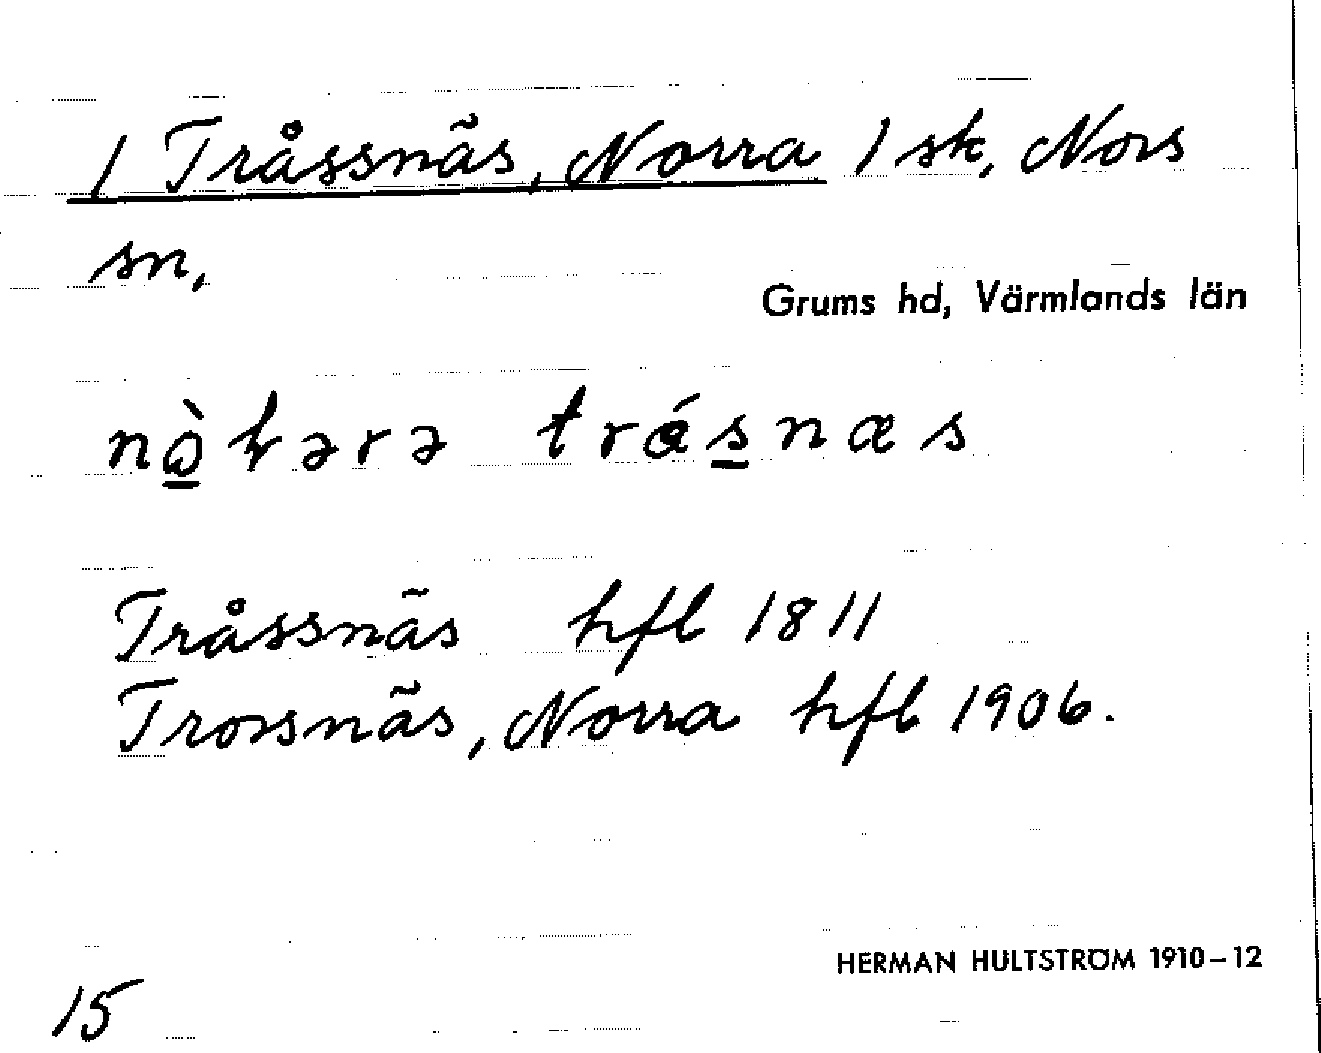 / Tråssnäs, Norra / sk, Nors
sn,
Grums hd, Värmlands län
Tråssnäs hfl 1811
Trossnäs, Norra hfl 1906.
HERMAN HULTSTRÖM 1910–12
15